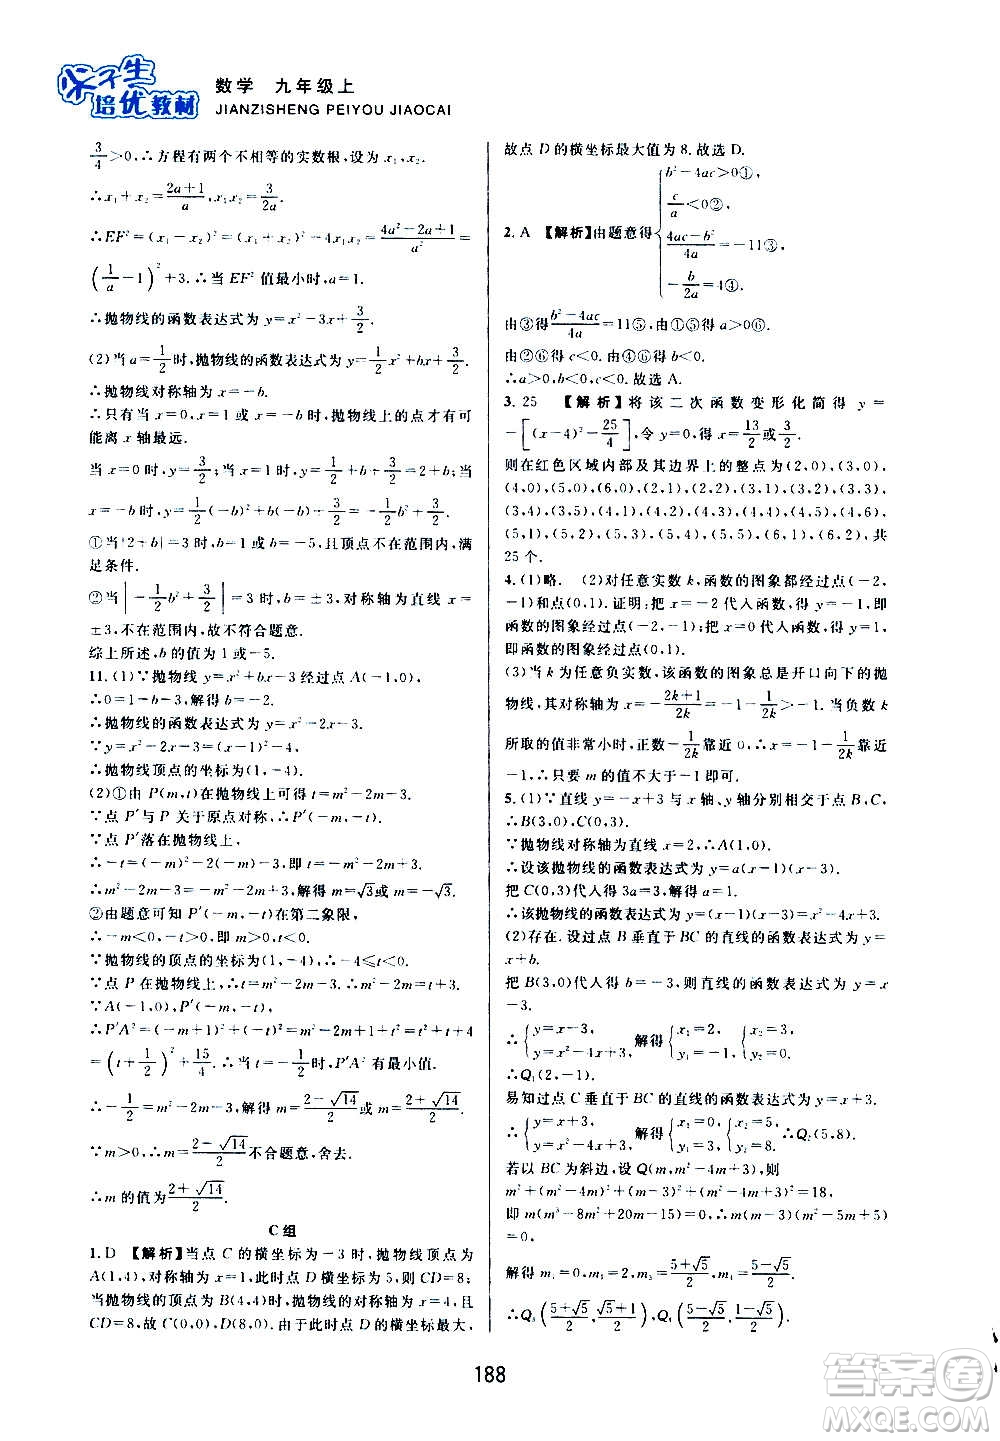 尖子生
培优教材
数学 九年级上
JIANZISHENG PEIYOU JIAOCAI
3/4>0,∴方程有两个不相等的实数根,设为x₁,x₂.
∴x₁+x₂=(2a+1)/a,x₁x₂=3/(2a).
∴EF²=(x₁-x₂)²=(x₁+x₂)²-4x₁x₂=(4a²-2a+1)/a²=
(1/a-1)²+3.∴当EF²值最小时,a=1.
∴抛物线的函数表达式为y=x²-3x+3/2.
(2)当a=1/2时,抛物线的函数表达式为y=1/2x²+bx+3/2.
∴抛物线对称轴为x=-b.
∴只有当x=0,x=1或x=-b时,抛物线上的点才有可
能离x轴最远.
当x=0时,y=3/2;当x=1时,y=1/2+b+3/2=2+b;当
x=-b时,y=1/2(-b)²+b(-b)+3/2=-1/2b²+3/2.
①当|2+b|=3时,b=1或b=-5,且顶点不在范围内,满
足条件.
②当|-1/2b²+3/2|=3时,b=±3,对称轴为直线x=
±3,不在范围内,故不符合题意.
综上所述,b的值为1或-5.
11.(1)∵抛物线y=x²+bx-3经过点A(-1,0),
∴0=1-b-3,解得b=-2.
∴抛物线的函数表达式为y=x²-2x-3.
∵y=x²-2x-3=(x-1)²-4,
∴抛物线顶点的坐标为(1,-4).
(2)①由P(m,t)在抛物线上可得t=m²-2m-3.
∵点P′与P关于原点对称,∴P′(-m,-t).
∵点P′落在抛物线上,
∴-t=(-m)²-2(-m)-3,即t=-m²-2m+3.
∴m²-2m-3=-m²-2m+3,解得m=√3或m=-√3.
②由题意可知P′(-m,-t)在第二象限,
∴-m<0,-t>0,即m>0,t<0.
∵抛物线的顶点的坐标为(1,-4),∴-4≤t<0.
∵点P在抛物线上,∴t=m²-2m-3.∴m²-2m=t+3.
∵A(-1,0),P′(-m,-t),
∴P′A²=(-m+1)²+(-t)²=m²-2m+1+t²=t²+t+4
=(t+1/2)²+15/4.∴当t=-1/2时,P′A²有最小值.
∴-1/2=m²-2m-3,解得m=(2-√14)/2或m=(2+√14)/2.
∵m>0,∴m=(2-√14)/2不合题意,舍去.
∴m的值为(2+√14)/2.
C组
1.D 【解析】当点C的横坐标为-3时,抛物线顶点为
A(1,4),对称轴为x=1,此时点D横坐标为5,则CD=8;
当抛物线的顶点为B(4,4)时,抛物线的对称轴为x=4,且
CD=8,故C(0,0),D(8,0).由于此时点D的横坐标最大,
故点D的横坐标最大值为8.故选D.
2.A 【解析】由题意得{b²-4ac>0①, c/a<0②, (4ac-b²)/4a=-11③, -b/2a=4④.
由③得(b²-4ac)/4a=11⑤,由①⑤得a>0⑥.
由②⑥得c<0.由④⑥得b<0.
∴a>0,b<0,c<0.故选A.
3.25 【解析】将该二次函数变形化简得y=
-[(x-4)²-25/4],令y=0,得x=13/2或3/2.
则在红色区域内部及其边界上的整点为(2,0),(3,0),
(4,0),(5,0),(6,0),(2,1),(2,2),(3,1),(3,2),(3,3),
(3,4),(3,5),(4,1),(4,2),(4,3),(4,4),(4,5),(4,6),
(5,1),(5,2),(5,3),(5,4),(5,5),(6,1),(6,2),共
25个.
4.(1)略. (2)对任意实数k,函数的图象都经过点(-2,
-1)和点(0,1).证明:把x=-2代入函数,得y=-1,即
函数的图象经过点(-2,-1);把x=0代入函数,得y=1,
即函数的图象经过点(0,1).
(3)当k为任意负实数,该函数的图象总是开口向下的抛
物线,其对称轴为x=-(2k+1)/2k=-1-1/2k>-1.当负数k
所取的值非常小时,正数-1/2k靠近0,∴x=-1-1/2k靠近
-1,∴只要m的值不大于-1即可.
5.(1)∵直线y=-x+3与x轴、y轴分别相交于点B,C,
∴B(3,0),C(0,3).
∵抛物线对称轴为直线x=2,∴A(1,0).
∴设该抛物线的函数表达式为y=a(x-1)(x-3).
把C(0,3)代入得3a=3,解得a=1.
∴该抛物线的函数表达式为y=(x-1)(x-3)=x²-4x+3.
(2)存在.设过点B垂直于BC的直线的函数表达式为y=
x+b.
把B(3,0)代入得b=-3,则直线的函数表达式为y=x
-3.
∴{y=x-3, y=x²-4x+3. 解得{x₁=2, y₁=-1, {x₂=3, y₂=0.
∴Q₁(2,-1).
易知过点C垂直于BC的直线的函数表达式为y=x+3.
∴{y=x+3, y=x²-4x+3, 解得{x₁=0, y₁=3, {x₂=5, y₂=8. ∴Q₂(5,8).
若以BC为斜边,设Q(m,m²-4m+3),则
m²+(m²-4m)²+(m-3)²+(m²-4m+3)²=18,
即m(m³-8m²+20m-15)=0,∴m(m-3)(m²-5m+5)
=0.
解得m₁=0,m₂=3,m₃=(5+√5)/2,m₄=(5-√5)/2.
∴Q₃((5+√5)/2,(√5+1)/2),Q₄((5-√5)/2,(1-√5)/2).
188
答案圈
MXQE.COM